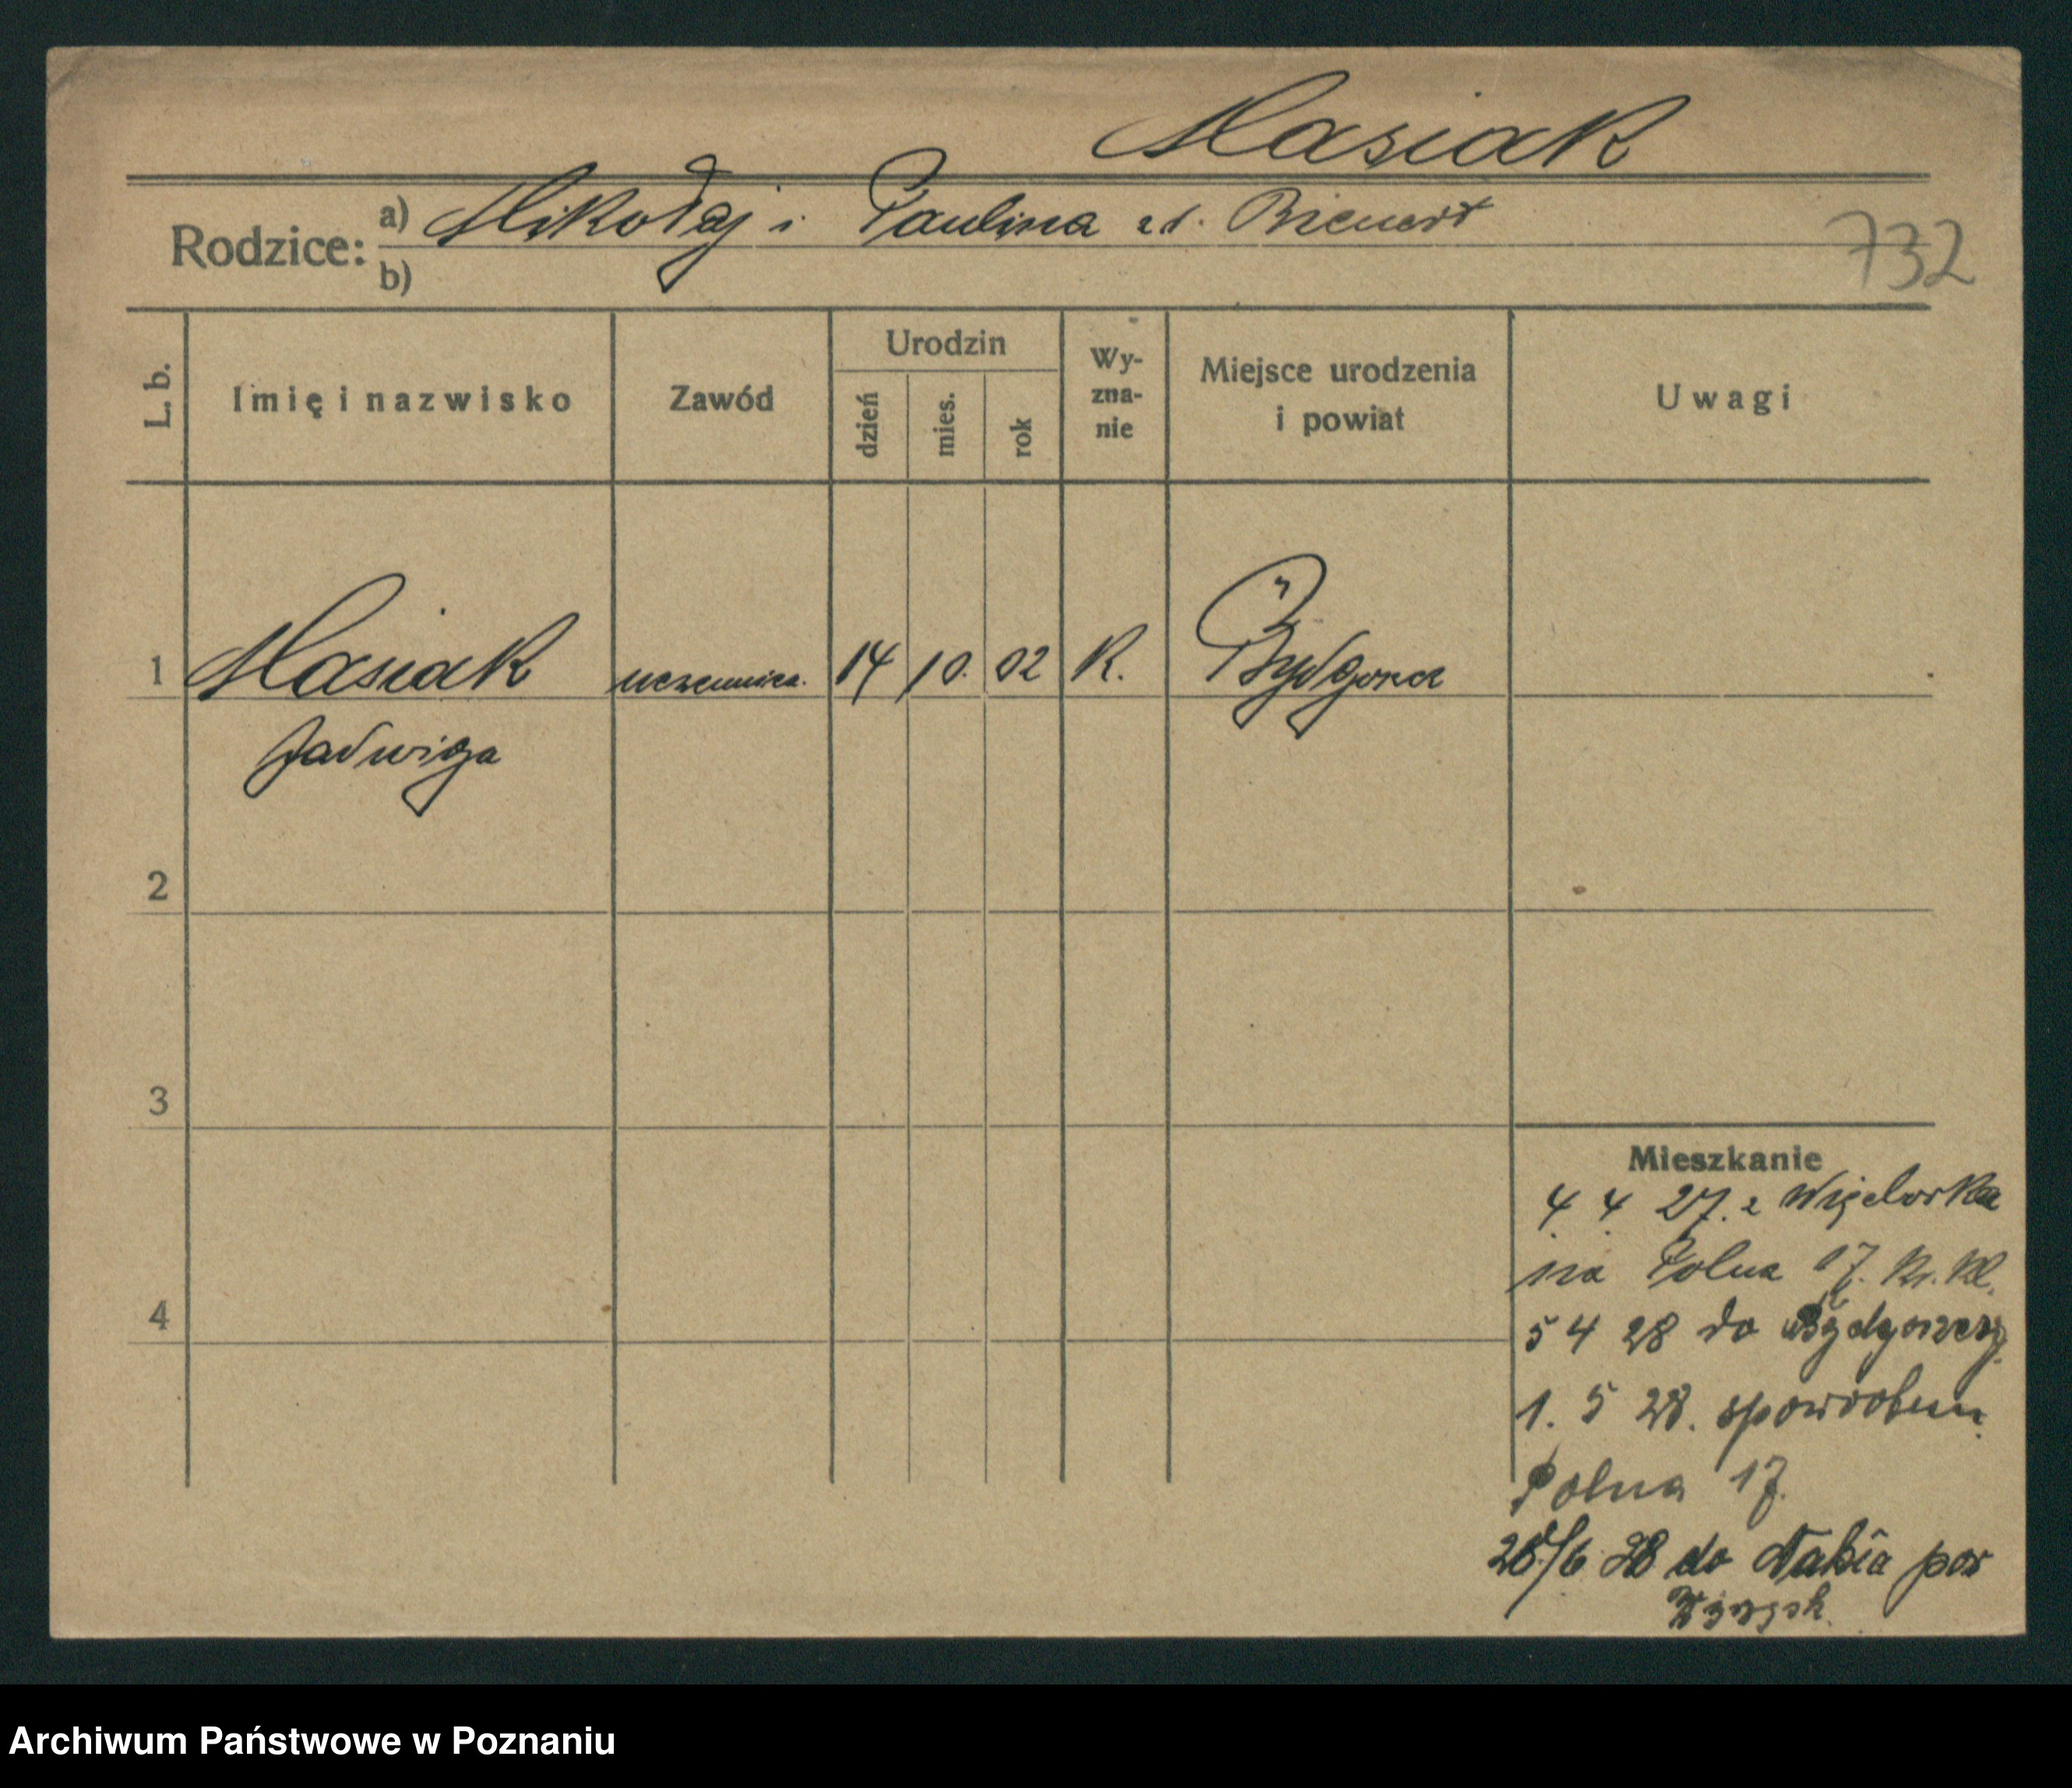 Masiak
Rodzice: a) Mikołaj i Paulina zd. Bienert
b)
732
L. b.
Imię i nazwisko
Zawód
Urodzin
dzień
mies.
rok
Wy-
zna-
nie
Miejsce urodzenia
i powiat
Uwagi
1 Masiak uczennica. 14 10. 02 K. Bydgoszcz
Jadwiga
2
3
4
Mieszkanie
4 4 27. z Więcborka
na Polna 17.
5 4 28 do Bydgoszczy
1. 5 28. spowrotem
Polna 17.
28/6 28 do Nakła pow
Wyrzysk.
Archiwum Państwowe w Poznaniu